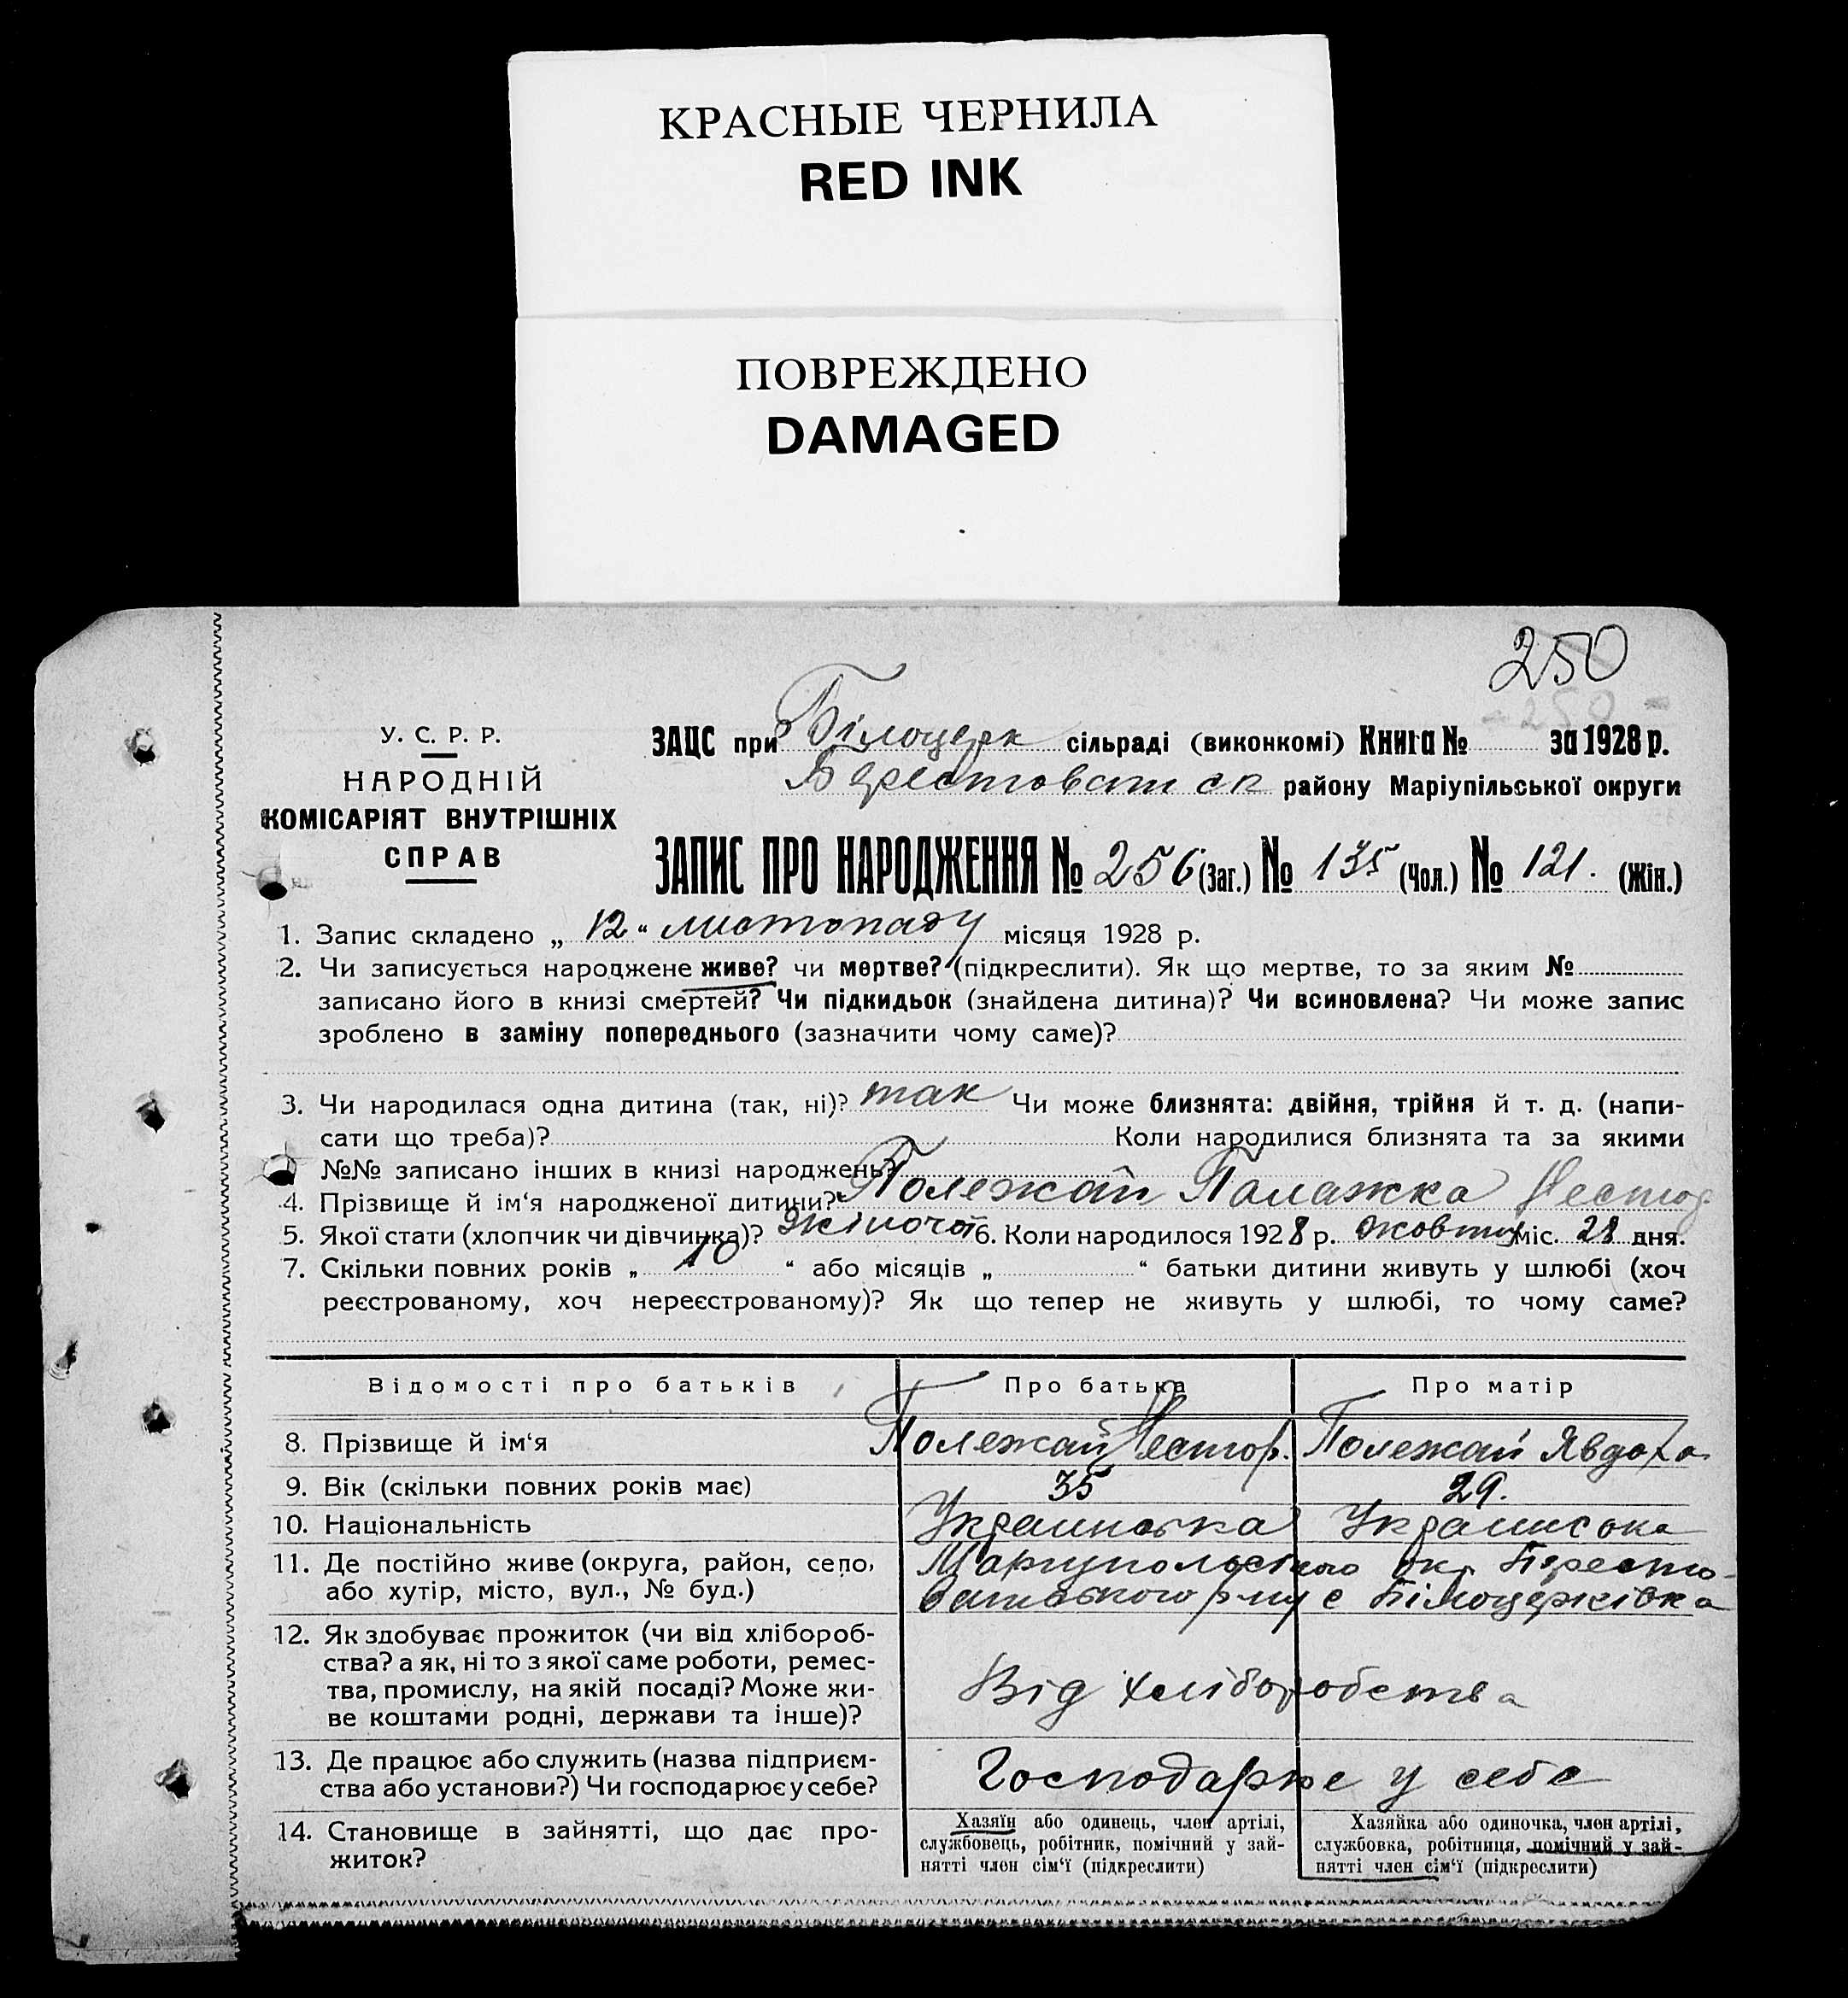 КРАСНЫЕ ЧЕРНИЛА
RED INK
ПОВРЕЖДЕНО
DAMAGED
250
250
У. С. Р. Р.
НАРОДНІЙ
КОМІСАРІЯТ ВНУТРІШНІХ
СПРАВ
ЗАЦС при Білоцерк сільраді (виконкомі) Книга № за 1928 р.
Берестоватск району Маріупільської округи
ЗАПИС ПРО НАРОДЖЕННЯ № 256 (Заг.) № 135 (Чол.) № 121. (Жін.)
1. Запис складено „ 12 “ листопаду місяця 1928 р.
2. Чи записується народжене живе? чи мертве? (підкреслити). Як що мертве, то за яким №
записано його в книзі смертей? Чи підкидьок (знайдена дитина)? Чи всиновлена? Чи може запис
зроблено в заміну попереднього (зазначити чому саме)?
3. Чи народилася одна дитина (так, ні)? так Чи може близнята: двійня, трійня й т. д. (напи-
сати що треба)? Коли народилися близнята та за якими
№№ записано інших в книзі народжень?
4. Прізвище й ім‘я народженої дитини? Полежай Палажка Нестор
5. Якої стати (хлопчик чи дівчинка)? жіночої 6. Коли народилося 1928 р. жовтня міс. 28 дня.
7. Скільки повних років „ 10 “ або місяців „ “ батьки дитини живуть у шлюбі (хоч
реєстрованому, хоч нереєстрованому)? Як що тепер не живуть у шлюбі, то чому саме?
Відомості про батьків Про батька Про матір
8. Прізвище й ім‘я Полежай Нестор. Полежай Явдоха
9. Вік (скільки повних років має) 35 29.
10. Національність Украинська Украинська
11. Де постійно живе (округа, район, село, Маріупольского ок. Бересто-
або хутір, місто, вул., № буд.) ватського р-ну с Білоцерківка
12. Як здобуває прожиток (чи від хлібороб-
ства? а як, ні то з якої саме роботи, ремес-
тва, промислу, на якій посаді? Може жи-
ве коштами родні, держави та інше)?
Від хліборобства
13. Де працює або служить (назва підприєм-
ства або установи?) Чи господарює у себе?
Господарює у себе
14. Становище в зайнятті, що дає про-
житок?
Хазяїн або одинець, член артілі,
службовець, робітник, помічний у зай-
нятті член сім‘ї (підкреслити)
Хазяйка або одиночка, член артілі,
службовка, робітниця, помічний у зай-
нятті член сім‘ї (підкреслити)